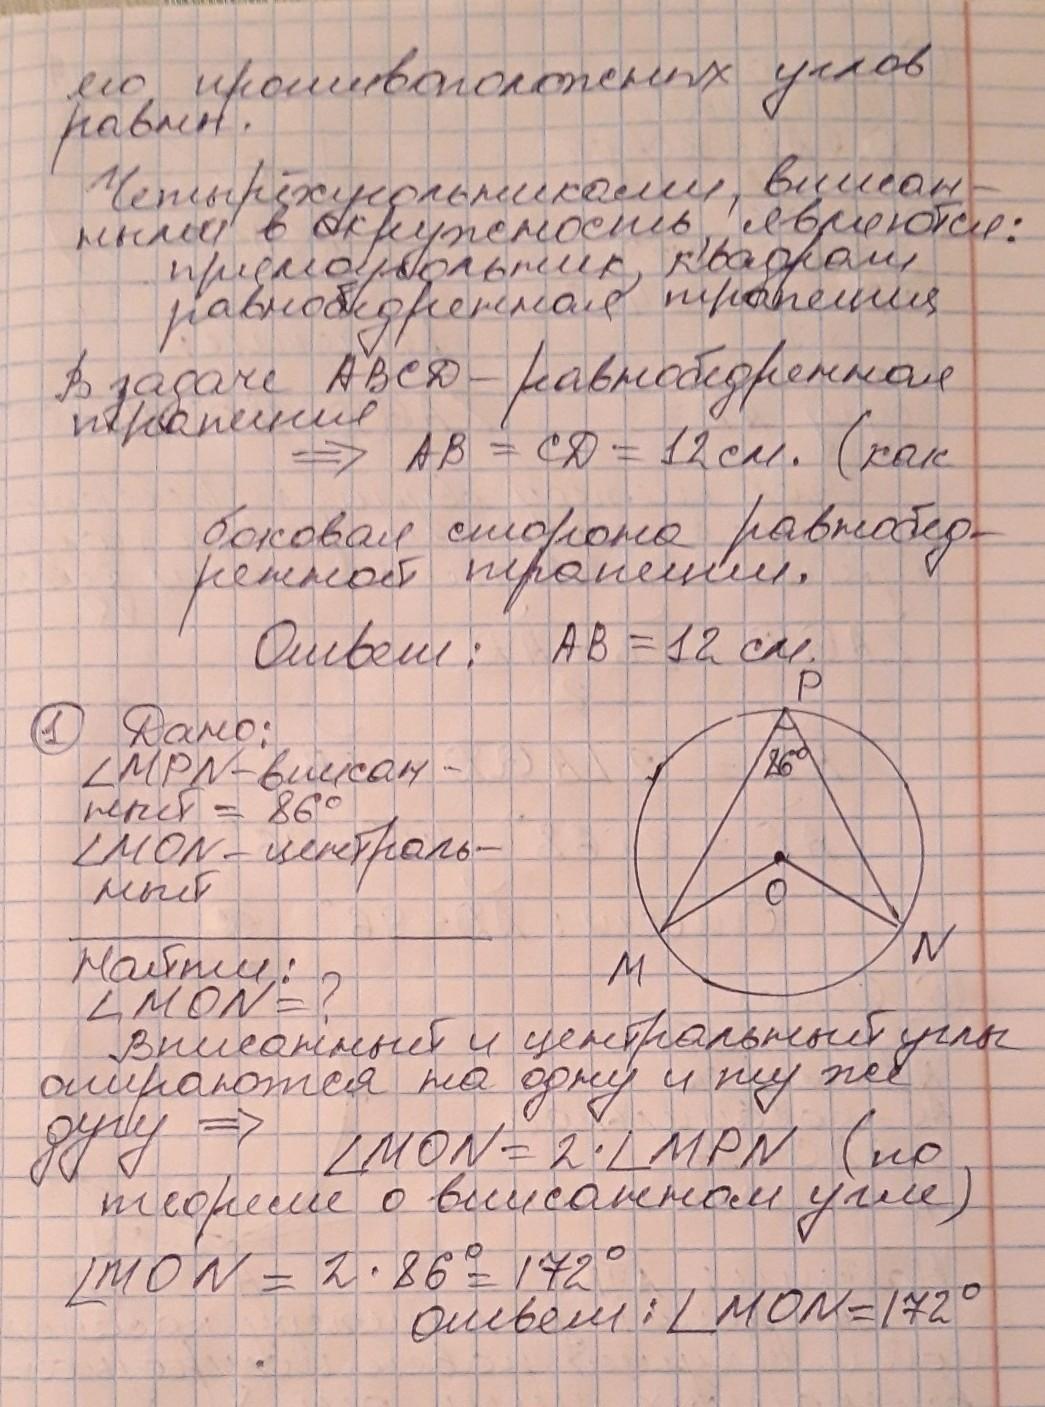 его противоположных углов
равны.
Четырёхугольниками, вписан-
ными в окружность, являются:
прямоугольник, квадрат
равнобедренная трапеция
В задаче ABCD – равнобедренная
трапеция
⇒ AB = CD = 12 см. (как
боковая сторона равнобед-
ренной трапеции.
Ответ: AB = 12 см.
P
① Дано:
∠MPN – вписан-
ный = 86°
86°
∠MON – централь-
ный
O
M
N
Найти:
∠MON = ?
Вписанный и центральный углы
опираются на одну и ту же
дугу ⇒
∠MON = 2·∠MPN (по
теореме о вписанном угле)
∠MON = 2·86° = 172°
Ответ: ∠MON = 172°